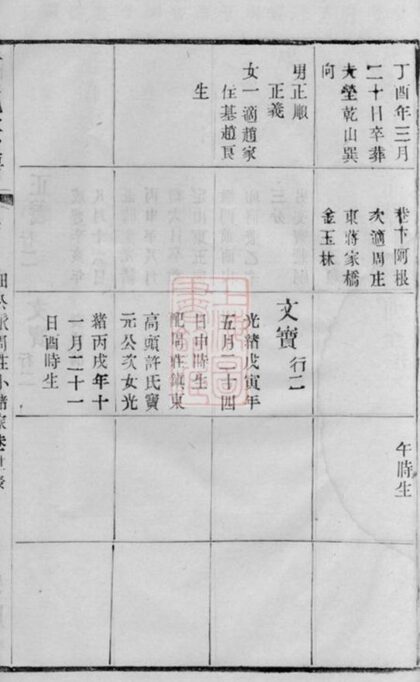 丁酉年三月
二十日卒葬
大塋乾山巽
向
男正順
正義
女一適趙家
任基趙良
生
巷卞阿根
次適周庄
東蔣家橋
金玉林
文寶 行二
光緒戊寅年
五月二十四
日申時生
配周莊鎮東
高頭許氏寶
元公次女光
緒丙戌年十
一月二十一
日酉時生
午時生